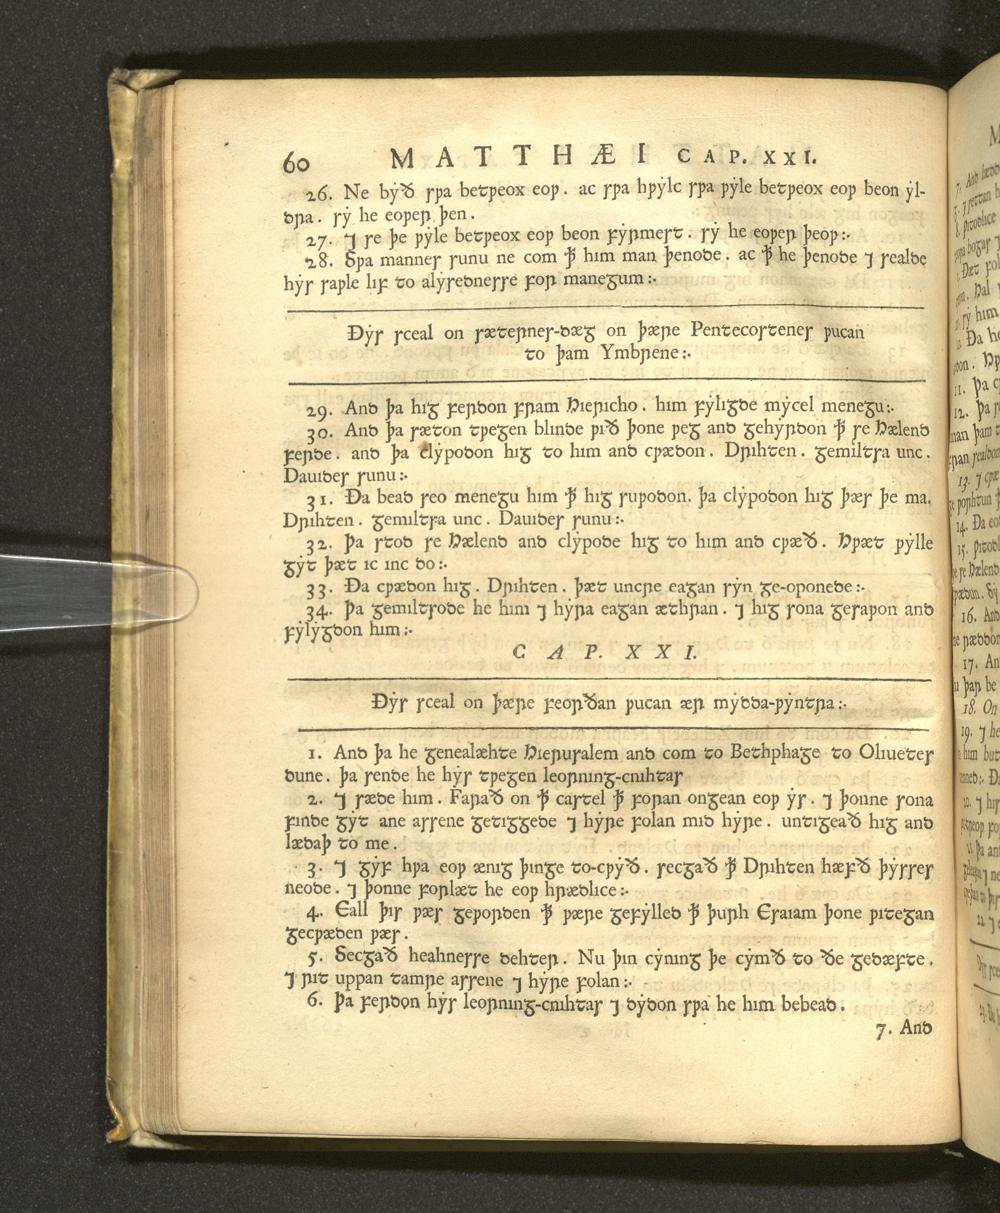 60 MATTHÆI CAP. XXI.
26. Ne bẏð sƿa betƿeox eoƿ. ac sƿa hƿẏlc sƿa ƿẏle betƿeox eoƿ beon ẏl-
dra. sẏ he eoƿer þen.
27. ⁊ se þe ƿẏle betƿeox eoƿ beon fẏrmest. sẏ he eoƿer þeoƿ:.
28. Sƿa mannes sunu ne com ꝥ him man þenode. ac ꝥ he þenode ⁊ sealde
hẏs saƿle lif to alẏsednesse for manegum:.
Ðẏs sceal on sæternes-dæg on þære Pentecostenes ƿucan
to þam Ymbrene:.
29. And þa hig ferdon fram Hiericho. him fẏligde mẏcel menegu:.
30. And þa sæton tƿegen blinde ƿið þone ƿeg and gehẏrdon ꝥ se Hælend
ferde. and þa clẏpodon hig to him and cƿædon. Drihten. gemiltsa unc.
Dauides sunu:.
31. Ða bead seo menegu him ꝥ hig suƿodon. þa clẏpodon hig þæs þe ma.
Drihten. gemiltsa unc. Dauides sunu:.
32. Þa stod se Hælend and clẏpode hig to him and cƿæð. Hƿæt ƿẏlle
gẏt þæt ic inc do:.
33. Ða cƿædon hig. Drihten. þæt uncre eagan sẏn ge-oponede:.
34. Þa gemiltsode he him ⁊ hẏra eagan æthran. ⁊ hig sona gesaƿon and
fẏlẏgdon him:.
CAP. XXI.
Ðẏs sceal on þære feorðan ƿucan ær mẏdda-ƿẏntra:.
1. And þa he genealæhte Hierusalem and com to Bethphage to Oliuetes
dune. þa sende he hẏs tƿegen leorning-cnihtas
2. ⁊ sæde him. Farað on ꝥ castel ꝥ foran ongean eoƿ ẏs. ⁊ þonne sona
finde gẏt ane assene getiggede ⁊ hẏre folan mid hẏre. untigeað hig and
lædaþ to me.
3. ⁊ gẏf hƿa eoƿ ænig þinge to-cƿẏð. secgað ꝥ Drihten hæfð þẏsses
neode. ⁊ þonne forlæt he eoƿ hrædlice:.
4. Eall þis ƿæs geƿorden ꝥ ƿære gefẏlled ꝥ þurh Esaiam þone ƿitegan
gecƿæden ƿæs.
5. Secgað heahnesse dehter. Nu þin cẏning þe cẏmð to ðe gedæfte.
⁊ rit uppan tamre assene ⁊ hẏre folan:.
6. Þa ferdon hẏs leorning-cnihtas ⁊ dẏdon sƿa he him bebead.
7. And